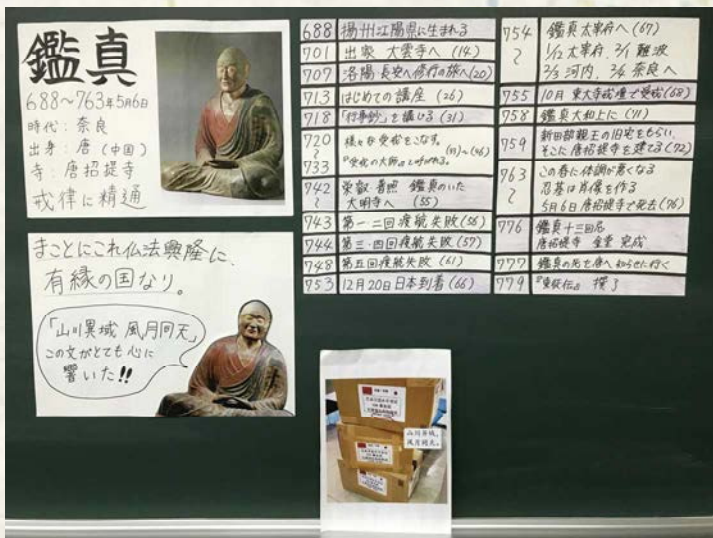 鑑真
688〜763年5月6日
時代:奈良
出身:唐(中国)
寺:唐招提寺
戒律に精通
まことにこれ仏法興隆に、
有縁の国なり。
「山川異域 風月同天」
この文がとても心に
響いた!!
688 揚州江陽県に生まれる
701 出家 大雲寺へ (14)
707 洛陽・長安へ修行の旅へ(20)
713 はじめての講座 (26)
718 「行事鈔」を講じる (31)
720〜733 様々な受戒をこなす。
「受戒の大師」と呼ばれる。 (33)〜(46)
742〜 栄叡・普照 鑑真のいた
大明寺へ (55)
743 第一・二回渡航失敗(56)
744 第三・四回渡航失敗(57)
748 第五回渡航失敗 (61)
753 12月20日日本到着(66)
754〜 鑑真太宰府へ(67)
1/12 太宰府、2/1 難波
2/3 河内、2/4 奈良へ
755 10月 東大寺戒壇で受戒(68)
758 鑑真大和上に (71)
759 新田部親王の旧宅をもらい、
そこに唐招提寺を建てる(72)
763〜 この春に体調が悪くなる
忍基は肖像を作る
5月6日唐招提寺で死去(76)
776 鑑真十三回忌
唐招提寺 金堂 完成
777 鑑真の死を唐へ知らせに行く
779 『東征伝』 撰了
山川异域,
风月同天。